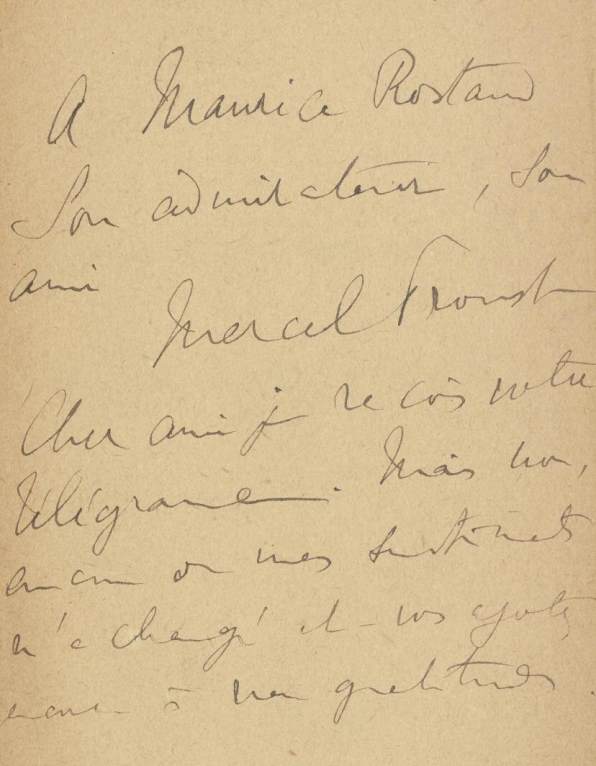 A Maurice Rostand
Son admirateur, son
ami
Marcel Proust
Cher ami je reçois votre
télégramme. Mais non,
aucun de mes sentiments
n'a changé et vos ajoutez
encore à ma gratitude.